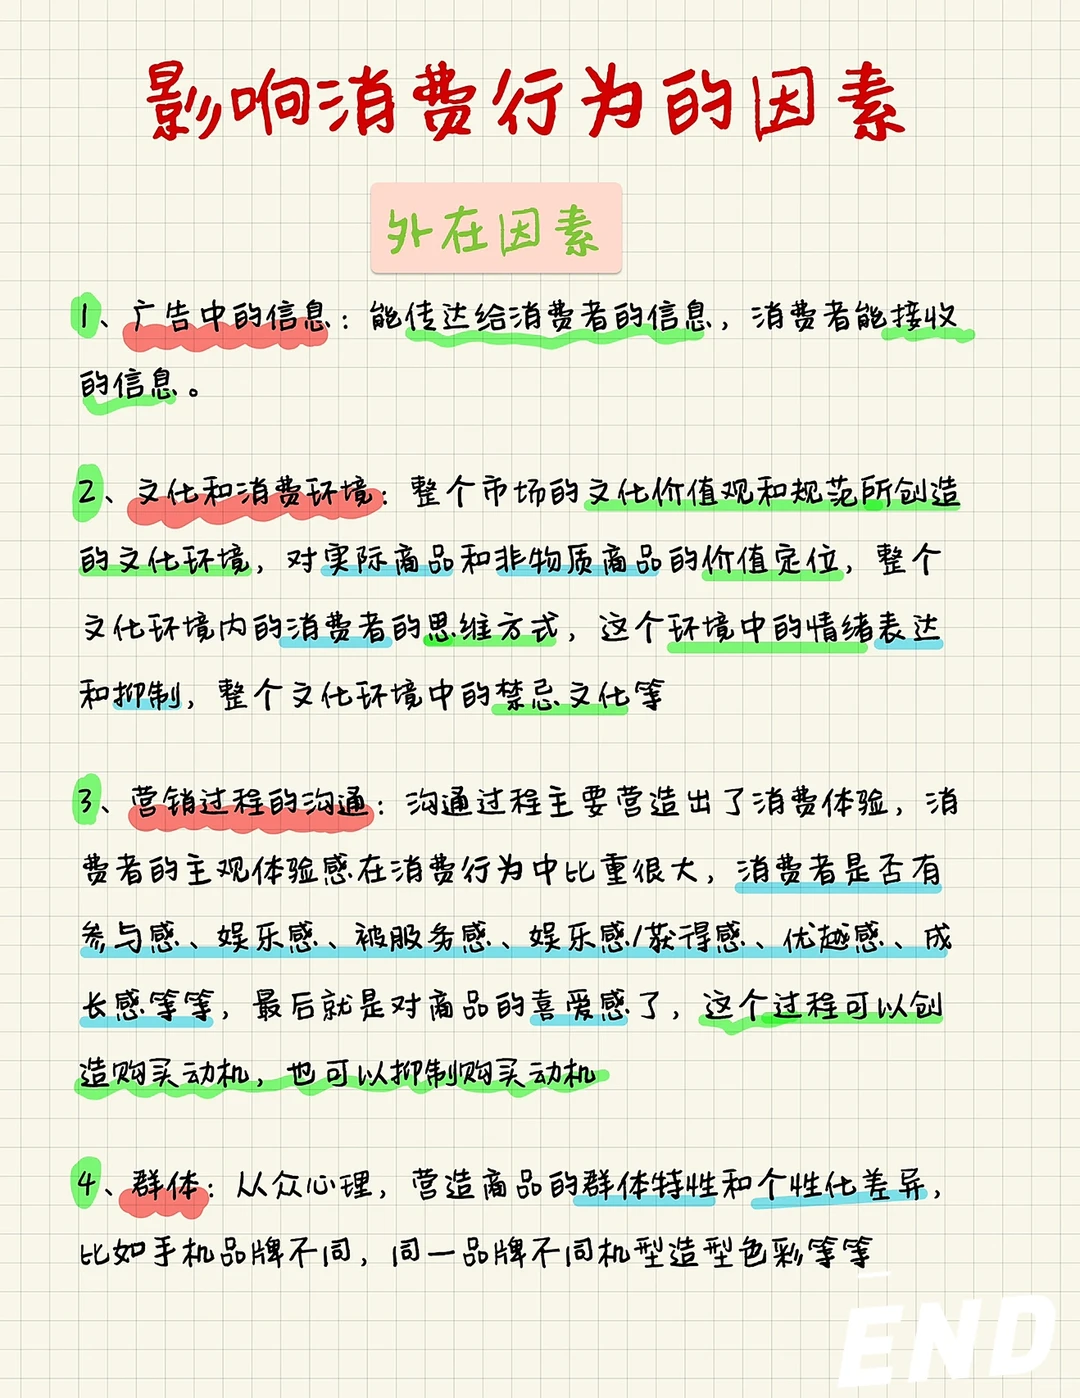 影响消费行为的因素
外在因素
1、广告中的信息：能传达给消费者的信息，消费者能接收
的信息。
2、文化和消费环境：整个市场的文化价值观和规范所创造
的文化环境，对实际商品和非物质商品的价值定位，整个
文化环境内的消费者的思维方式，这个环境中的情绪表达
和抑制，整个文化环境中的禁忌文化等
3、营销过程的沟通：沟通过程主要营造出了消费体验，消
费者的主观体验感在消费行为中比重很大，消费者是否有
参与感、娱乐感、被服务感、娱乐感/获得感、优越感、成
长感等等，最后就是对商品的喜爱感了，这个过程可以创
造购买动机，也可以抑制购买动机
4、群体：从众心理，营造商品的群体特性和个性化差异，
比如手机品牌不同，同一品牌不同机型造型色彩等等
END